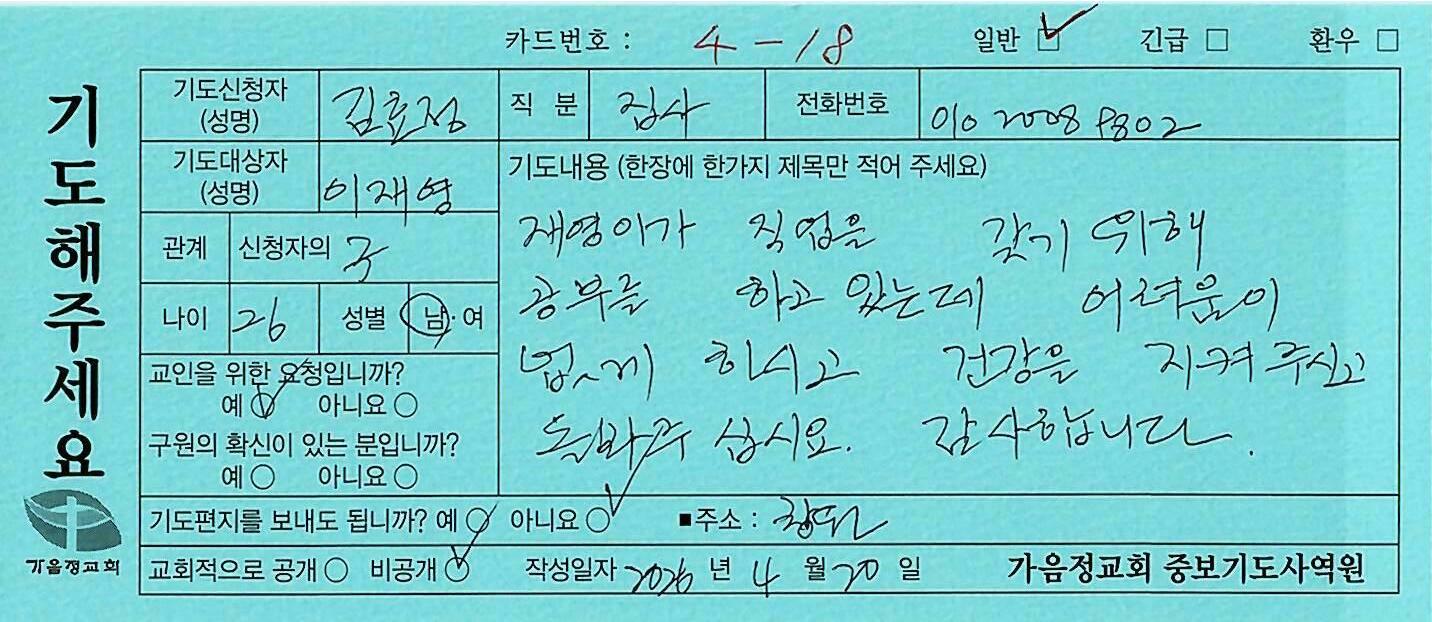 카드번호 : 4 - 18 일반 ☑ 긴급 □ 환우 □
기도해주세요
기도신청자 (성명) 김효정 직 분 집사 전화번호 010 2008 9802
기도대상자 (성명) 이재영
기도내용 (한장에 한가지 제목만 적어 주세요)
관계 신청자의 子
나이 26 성별 남 · 여
재영이가 직업을 갖기 위해
공부를 하고 있는데 어려움이
없게 하시고 건강을 지켜 주시고
돌봐주십시요. 감사합니다.
교인을 위한 요청입니까?
예 ○ 아니요 ○
구원의 확신이 있는 분입니까?
예 ○ 아니요 ○
기도편지를 보내도 됩니까? 예 ○ 아니요 ○ ■주소 : 창원
교회적으로 공개 ○ 비공개 ○ 작성일자 2026 년 4 월 20 일 가음정교회 중보기도사역원
가음정교회